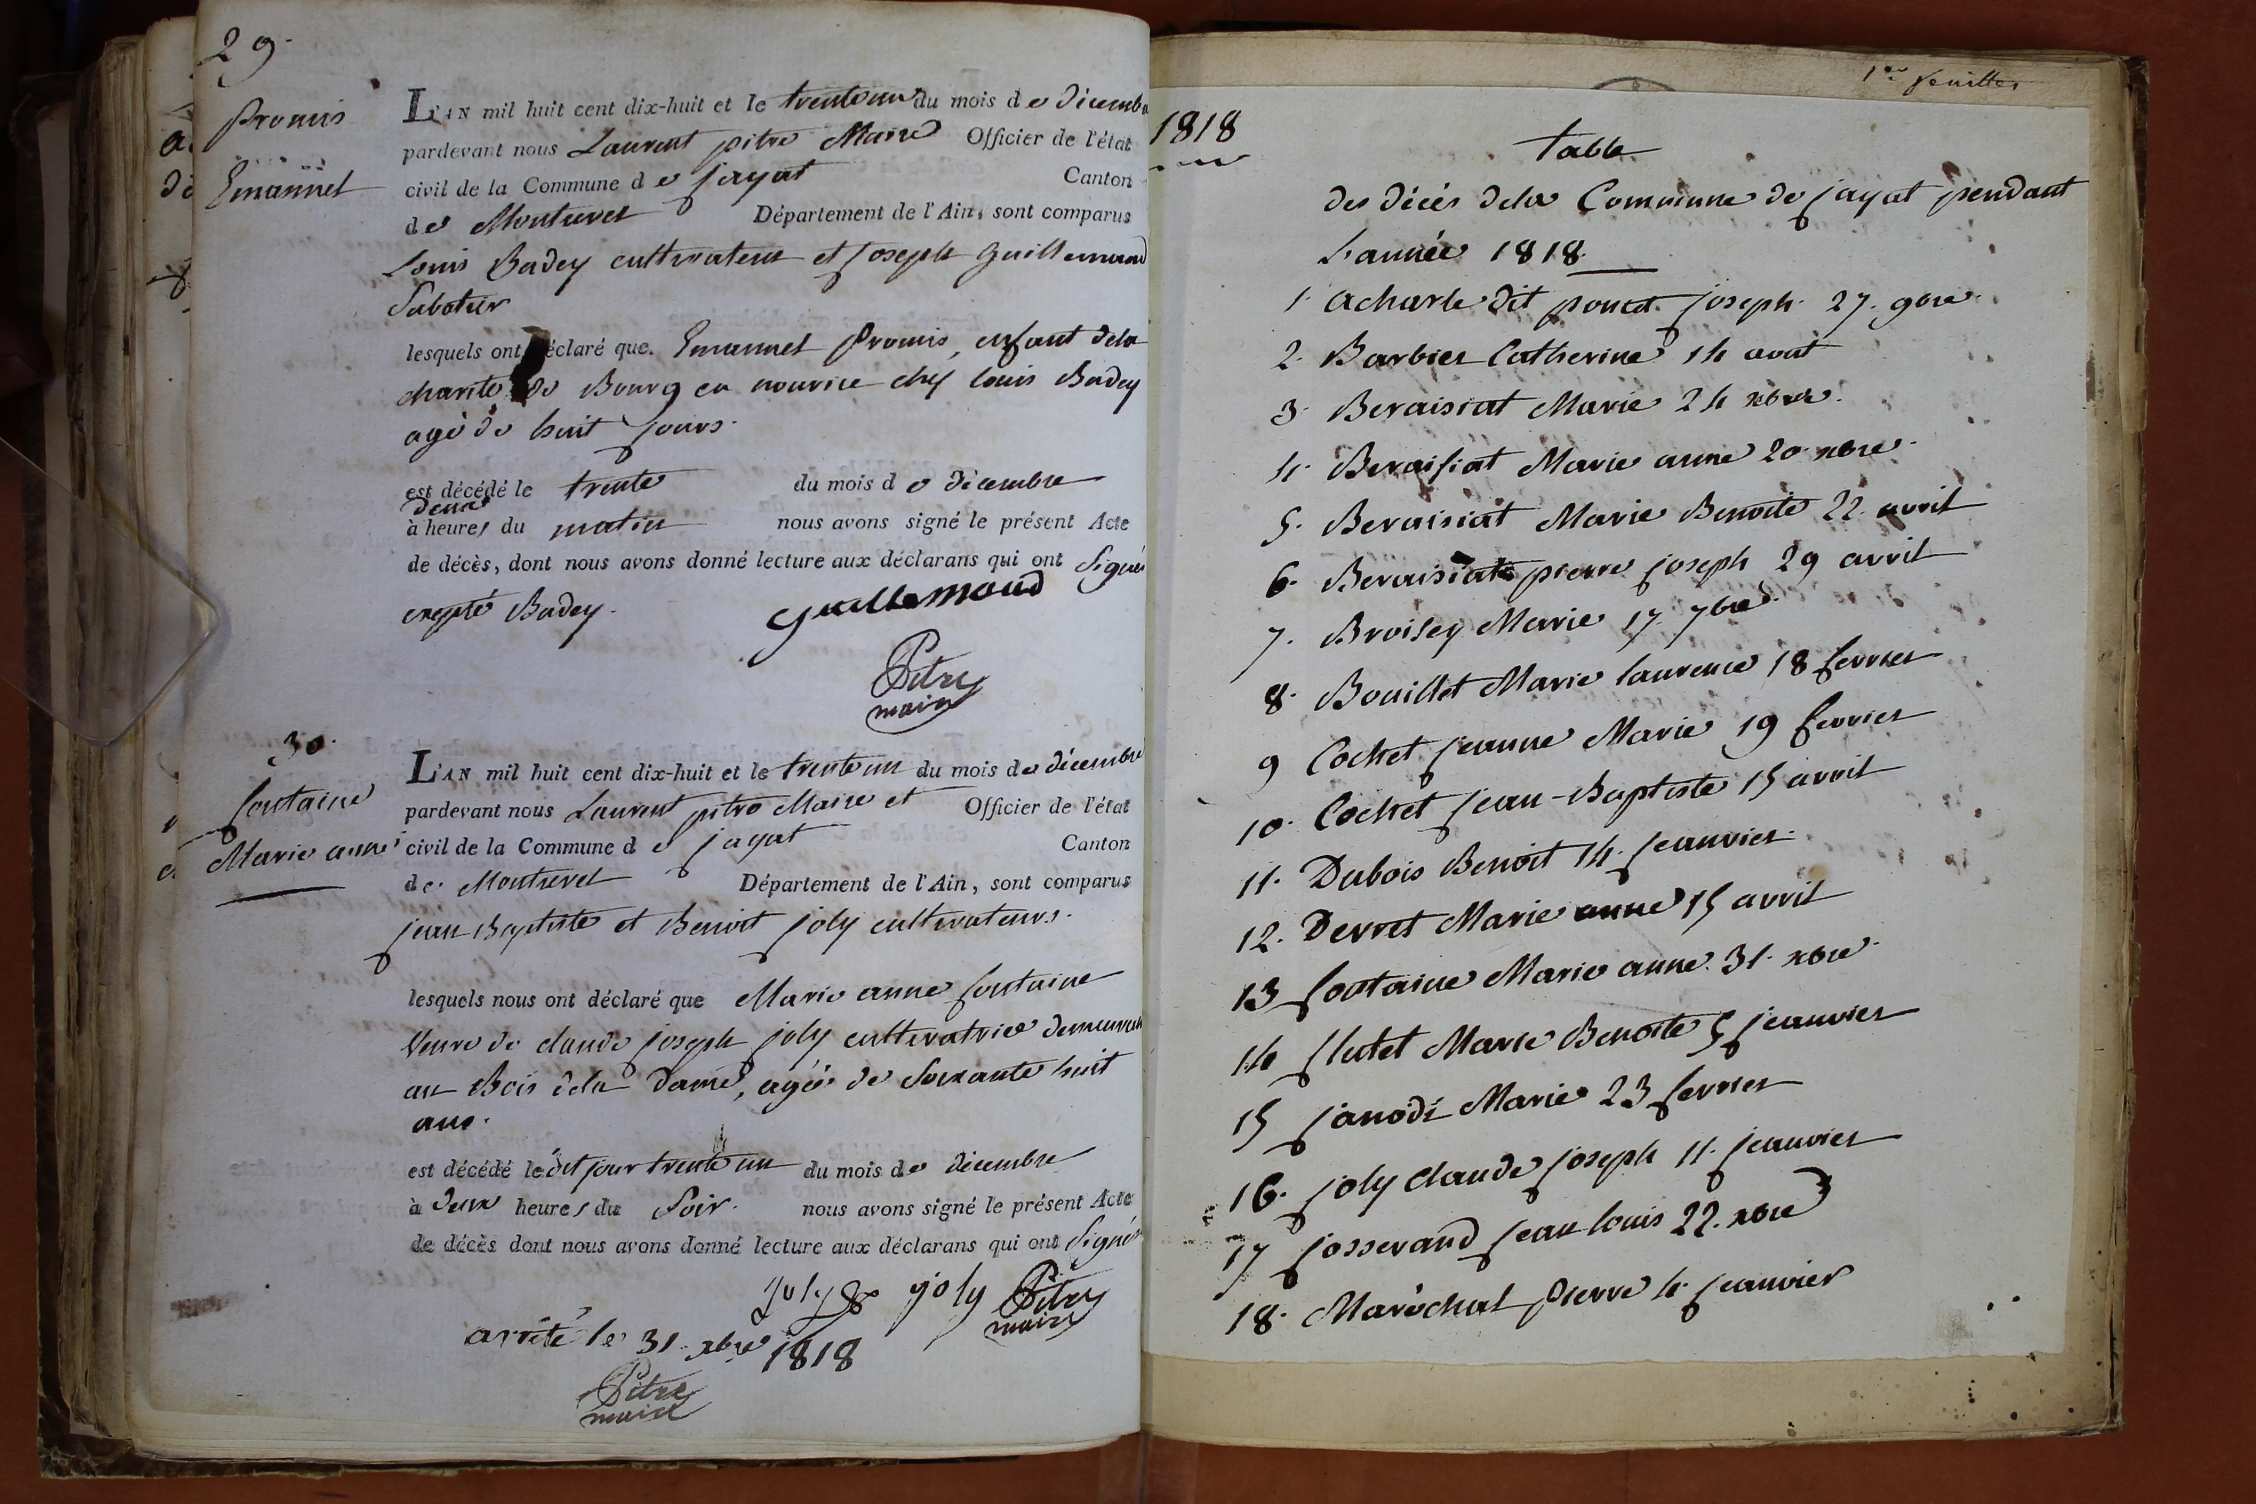 29.
Promis
Emannuel
L'AN mil huit cent dix-huit et le trente un du mois de décemb
pardevant nous Laurent pitre Maire Officier de l'état
civil de la Commune de jayat Canton
de Montrevel Département de l'Ain, sont comparus
Louis Badey cultivateur et joseph guillemaud
Sabotier
lesquels ont déclaré que Emannuel Promis, enfant dela
charité de Bourg en nourice chez louis Badey
agé de huit jours.
est décédé le trente du mois de décembre
deux
à heures du matin nous avons signé le présent Acte
de décès, dont nous avons donné lecture aux déclarans qui ont signé
excepté Badey.
guillemaud
Pitre
maire
30.
fontaine
Marie anne
L'AN mil huit cent dix-huit et le trente un du mois de décembre
pardevant nous Laurent pitre Maire et Officier de l'état
civil de la Commune de jayat Canton
de Montrevel Département de l'Ain, sont comparus
jean Baptiste et Benoit joly cultivateurs.
lesquels nous ont déclaré que Marie anne fontaine
Veuve de claude joseph joly cultivatrice demeurant
au Bois dela Dame, agée de Soixante huit
ans.
est décédé le dit jour trente un du mois de décembre
à deux heures du Soir. nous avons signé le présent Acte
de décès dont nous avons donné lecture aux déclarans qui ont signés
joly joly Pitre
maire
arrêté le 31 xbre 1818
Pitre
maire
1re feuille
1818
Table
des décés dela Commune de jayat pendant
L'année 1818.
1. acharle dit poncet joseph. 27. 9bre.
2. Barbier Catherine 14 aout
3. Beraisiat Marie 24 xbre.
4. Beraisiat Marie anne 20 xbre.
5. Beraisiat Marie Benoite 22 avril
6. Beraisiat pierre joseph 29 avril
7. Broisey Marie 17. 7bre.
8. Bouillet Marie laurence 18 fevrier
9 Cochet jeanne Marie 19 fevrier
10. Cochet jean-Baptiste 15 avril
11. Dubois Benoit 14. jeanvier.
12. Devret Marie anne 15 avril
13 fontaine Marie anne. 31. xbre.
14 flutet Marie Benoite 5 jeanvier
15 janodi Marie 23 fevrier
16. joly claude joseph 11. jeanvier
17 josserand jean louis 22. xbre
18. Maréchal pierre 4. jeanvier